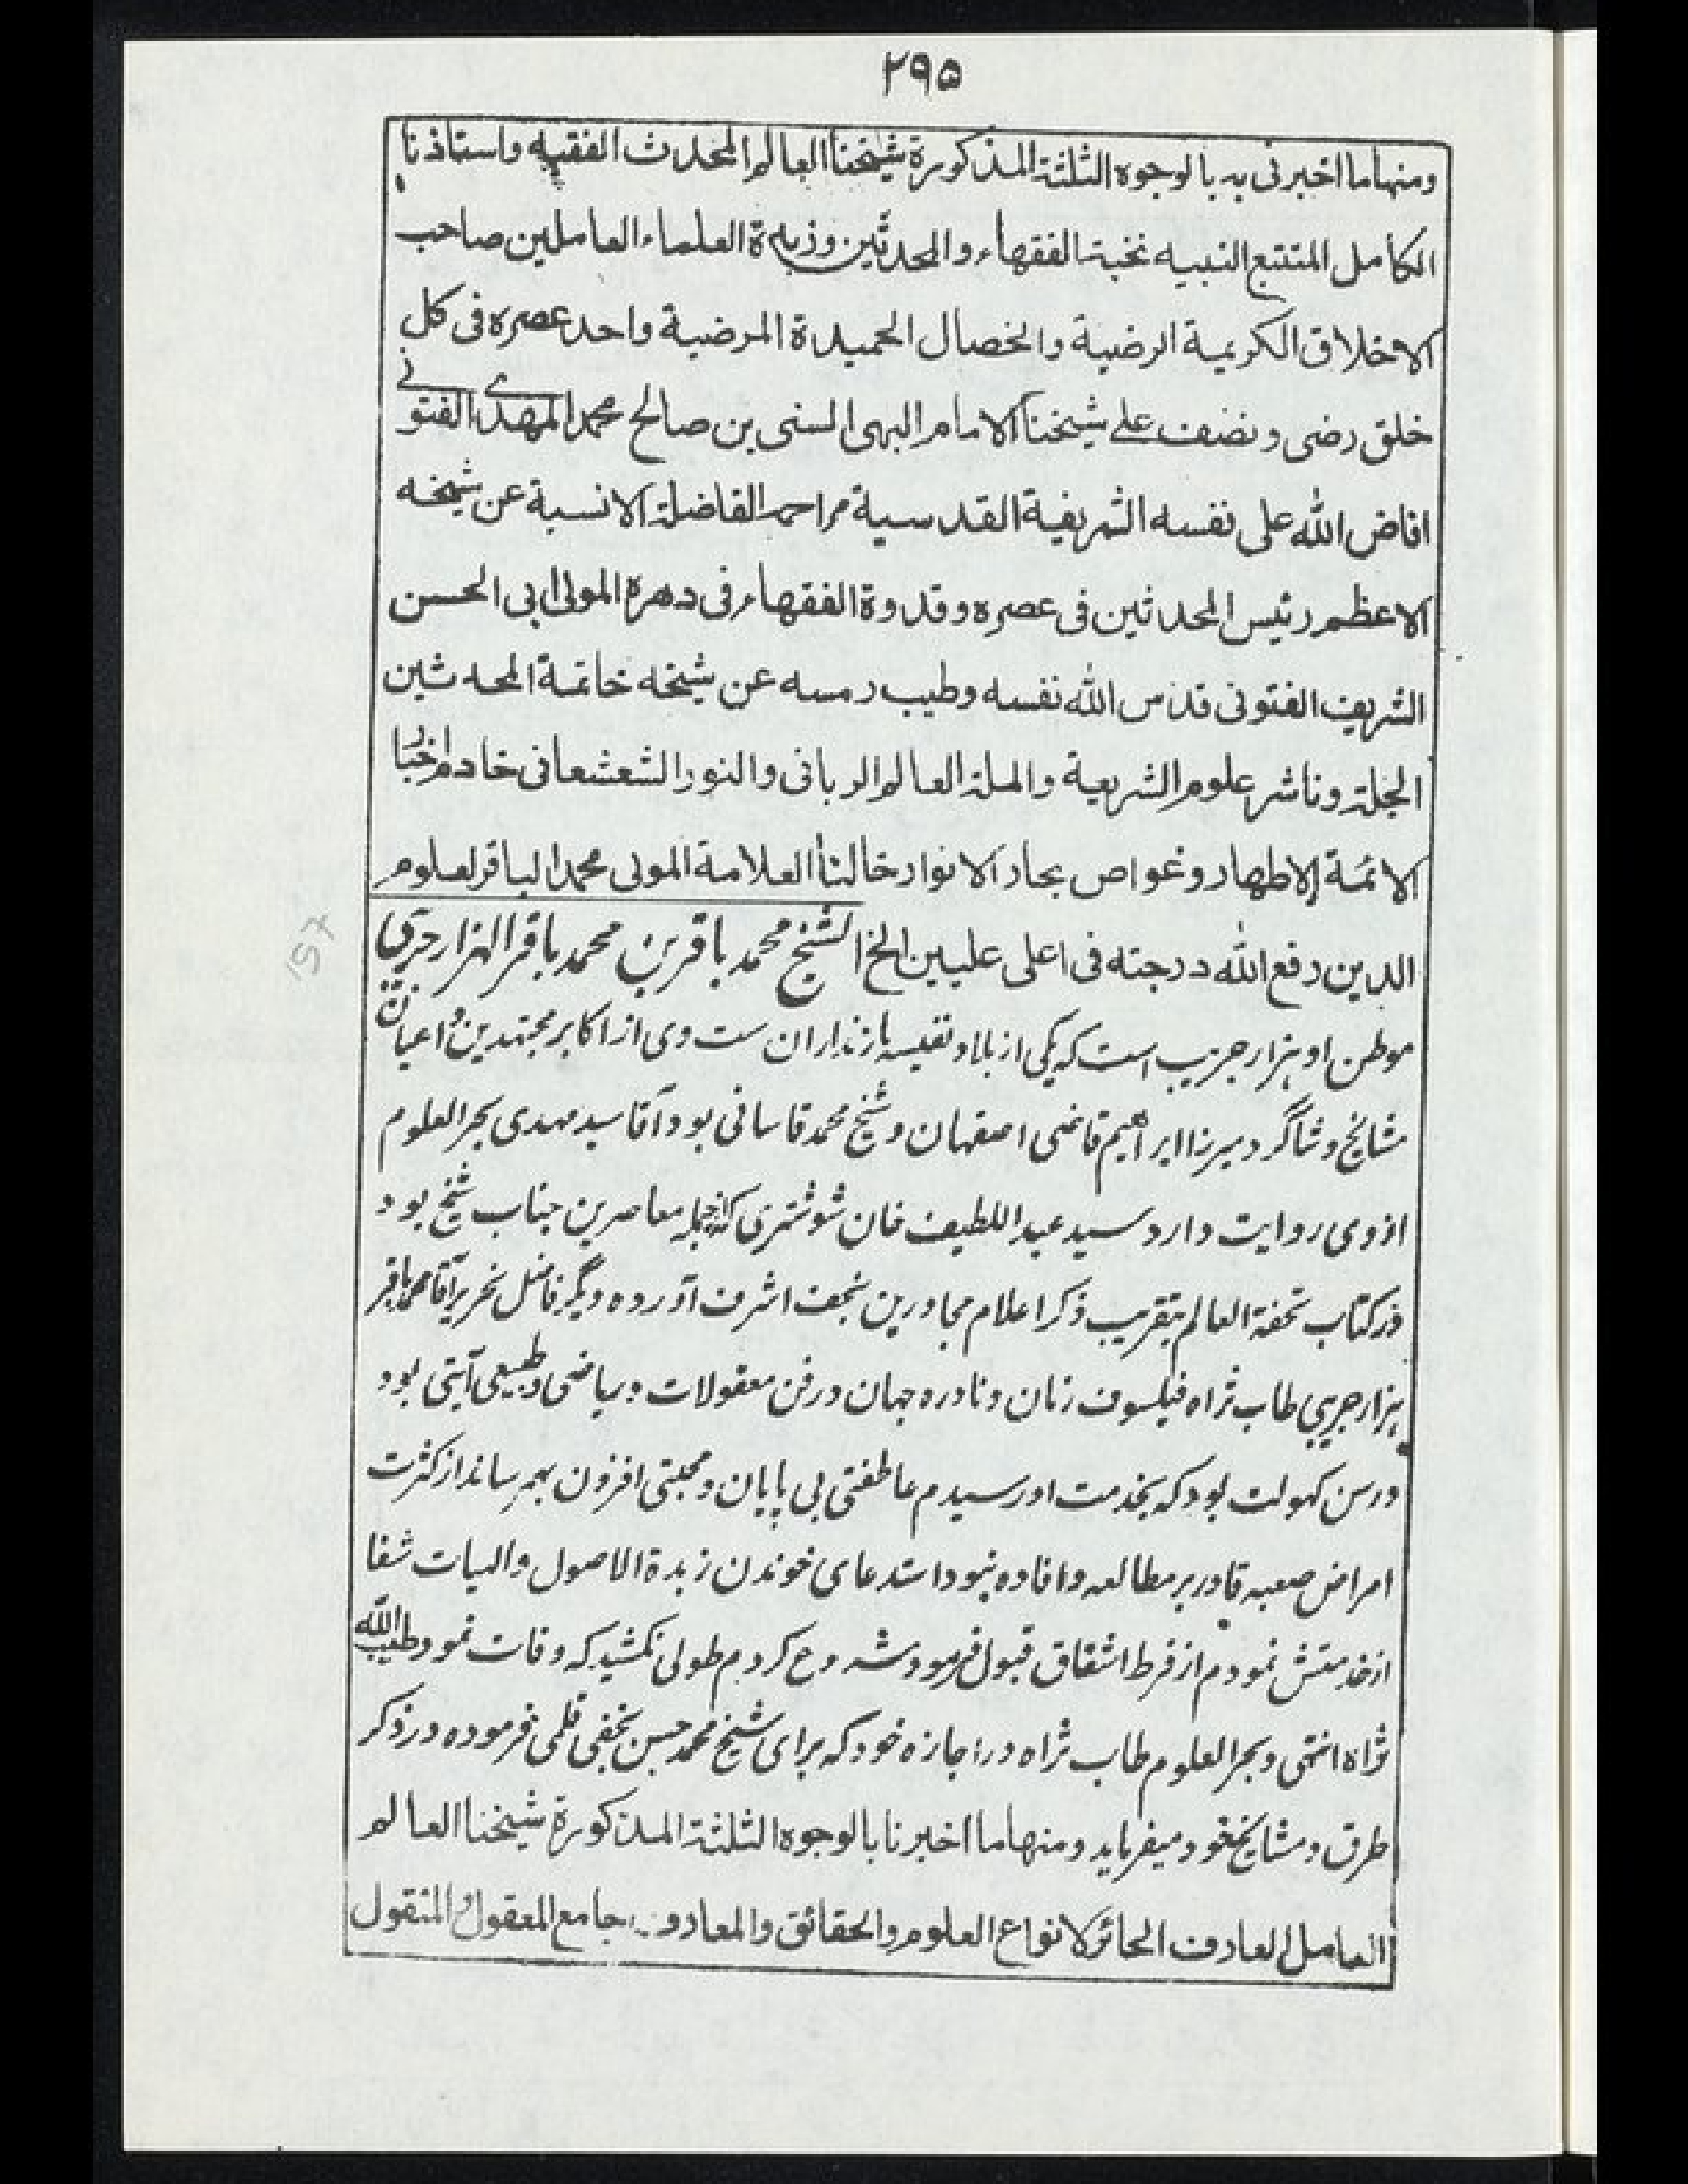 ۲۹۵
ومنها ما اخبرنى به بالوجوه الثلثة المذكورة شيخنا العالم المحدث الفقيه واستاذنا
الكامل المتتبع النبيه نخبة الفقهاء والمحدثين وزبدة العلماء العاملين صاحب
الاخلاق الكريمة الرضية والخصال الحميدة المرضية واحد عصره فى كل
خلق رضى ونضف على شيخنا الامام البهى السنى بن صالح محمد المهدى الفتونى
افاض الله على نفسه الشريفة القدسية مراحمه الفاضلة الانسية عن شيخه
الاعظم رئيس المحدثين فى عصره وقدوة الفقهاء فى دهره المولى ابى الحسن
الشريف الفتونى قدس الله نفسه وطيب رمسه عن شيخه خاتمة المحدثين
الجلة وناشر علوم الشريعة والملة العالم الربانى والنور الشعشعانى خادم اخبار
الائمة الاطهار وغواص بحار الانوار خالنا العلامة المولى محمد الباقر لعلوم
الدين رفع الله درجته فى اعلى عليين الخ الشيخ محمد باقر بن محمد باقر الهزارجريبى
موطن او هزار جريب است كه يكى از بلاد نفيسه مازندران ست وى از اكابر مجتهدين و اعيان ثقة
مشايخ و شاگرد ميرزا ابراهيم قاضى اصفهان و شيخ محمد قاسانى بود آقا سيد مهدى بحر العلوم
از وى روايت دارد سيد عبد اللطيف خان شوشترى كه از جمله معاصرين جناب شيخ بود
در كتاب تحفة العالم بتقريب ذكر اعلام مجاورين نجف اشرف آورده ديگر فاضل نحرير آقا محمد باقر
هزارجريبى طاب ثراه فيلسوف زمان و نادره جهان در فن معقولات و رياضى و طبيعى آيتى بود
در سن كهولت بود كه بخدمت او رسيدم عاطفتى بى پايان و محبتى افزون بهم رساند از كثرت
امراض صعبه قادر بر مطالعه و افاده نبود استدعاى خوندن زبدة الاصول والهيات شفا
از خدمتش نمودم از فرط اشفاق قبول فرمود شروع كردم طولى نكشيد كه وفات نمود طيب الله
ثراه انتهى و بحر العلوم طاب ثراه در اجازه خود كه براى شيخ محمد حسن نجفى قلمى فرموده در ذكر
طرق و مشايخ خود ميفرمايد ومنها ما اخبرنا بالوجوه الثلثة المذكورة شيخنا العالم
العامل العارف الحائز لانواع العلوم والحقائق والمعارف جامع المعقول والمنقول
157